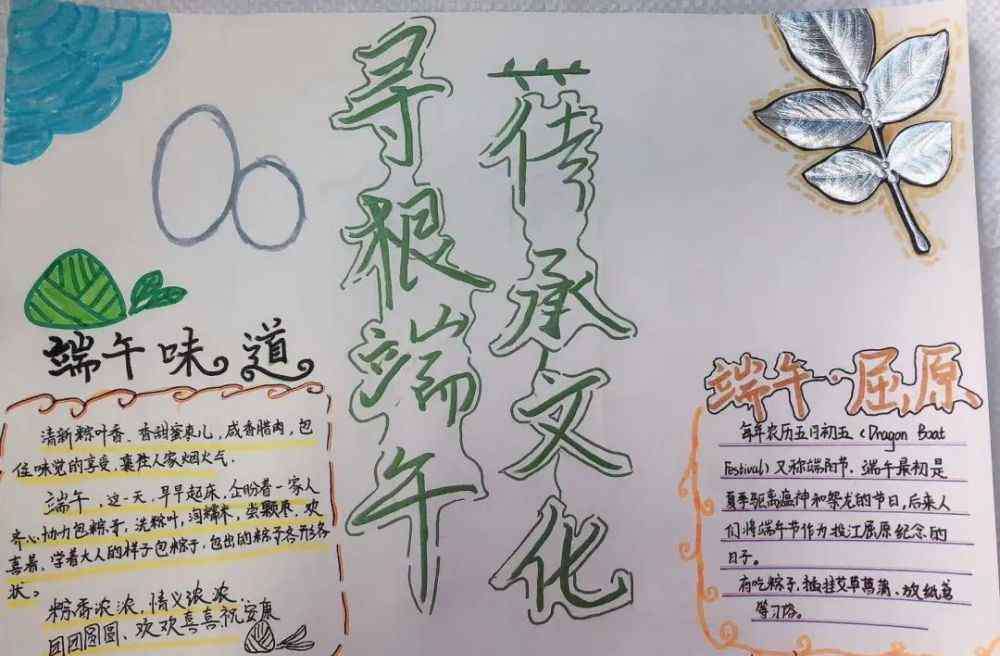 寻根端午
传承文化
端午味道
清新粽叶香、香甜蜜枣儿,咸香腊肉,包
住味觉的享受,裹住人家烟火气.
端午,这一天,早早起床,企盼着一家人
齐心协力包粽子,洗粽叶,淘糯米,尝颗枣,欢
喜着,学着大人的样子包粽子,包出的粽子各形各
状。
粽香浓浓,情义浓浓.
团团圆圆、欢欢喜喜祝安康
端午·屈原
每年农历五月初五(Dragon Boat
Festival)又称端阳节.端午最初是
夏季驱离瘟神和祭龙的节日,后来人
们将端午节作为投江屈原纪念的
日子。
有吃粽子,插挂艾草菖蒲、放纸鸢
等习俗。